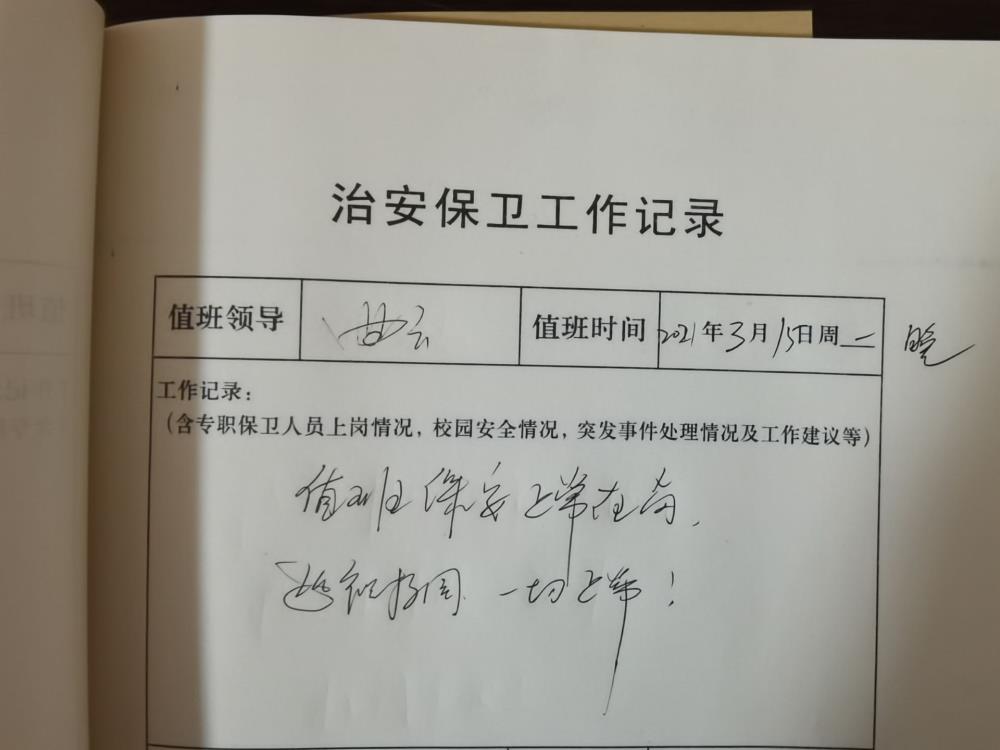 治安保卫工作记录
值班领导 曲云 值班时间 2021年3月15日周一 晚
工作记录：
（含专职保卫人员上岗情况，校园安全情况，突发事件处理情况及工作建议等）
值班保安正常在岗，
巡视校园，一切正常！